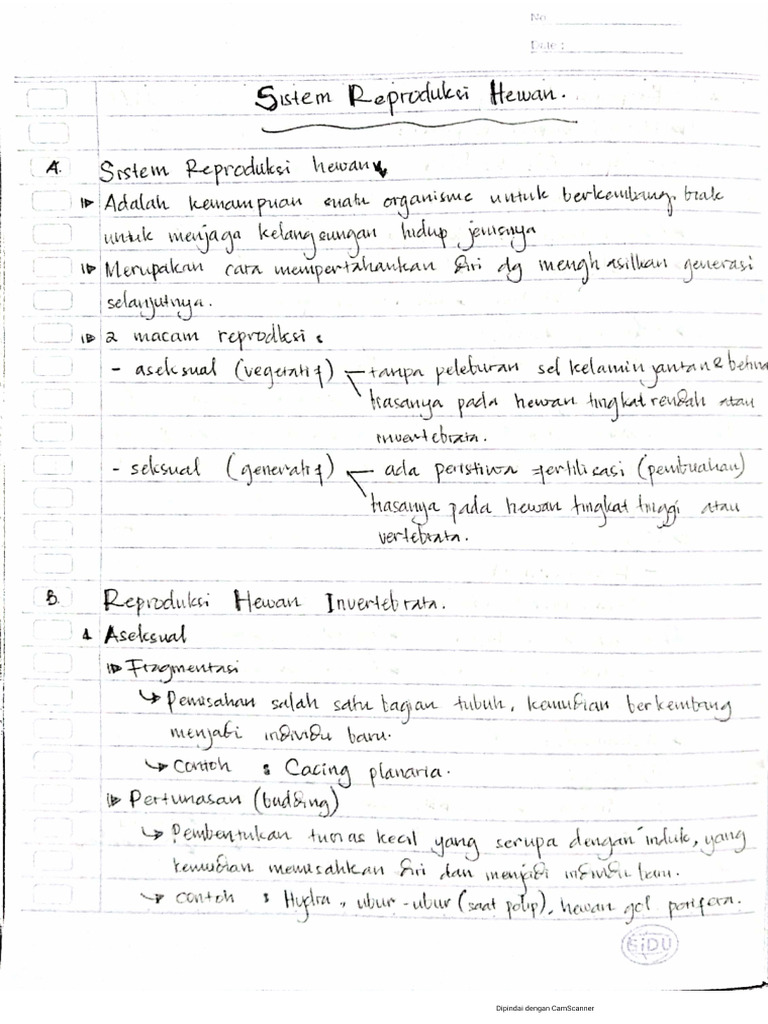 No
Date :
Sistem Reproduksi Hewan.
A. Sistem Reproduksi hewan
Adalah kemampuan suatu organisme untuk berkembang biak
untuk menjaga kelangsungan hidup jenisnya
Merupakan cara mempertahankan diri dg menghasilkan generasi
selanjutnya.
2 macam reprodksi :
- aseksual (vegetatif) tanpa peleburan sel kelamin jantan & betina
biasanya pada hewan tingkat rendah atau
invertebrata.
- seksual (generatif) - ada peristiwa fertilisasi (pembuahan)
biasanya pada hewan tingkat tinggi atau
vertebrata.
B. Reproduksi Hewan Invertebrata.
1 Aseksual
Fragmentasi
↳ Pemisahan salah satu bagian tubuh, kemudian berkembang
menjadi individu baru.
↳ Contoh : Cacing planaria.
Pertunasan (budding)
↳ Pembentukan tunas kecil yang serupa dengan induk, yang
kemudian memisahkan diri dan menjadi individu baru.
↳ contoh : Hydra, ubur-ubur (saat polip), hewan gol porifera.
SiDU
Dipindai dengan CamScanner